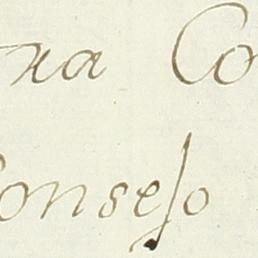 xa Co
Consejo